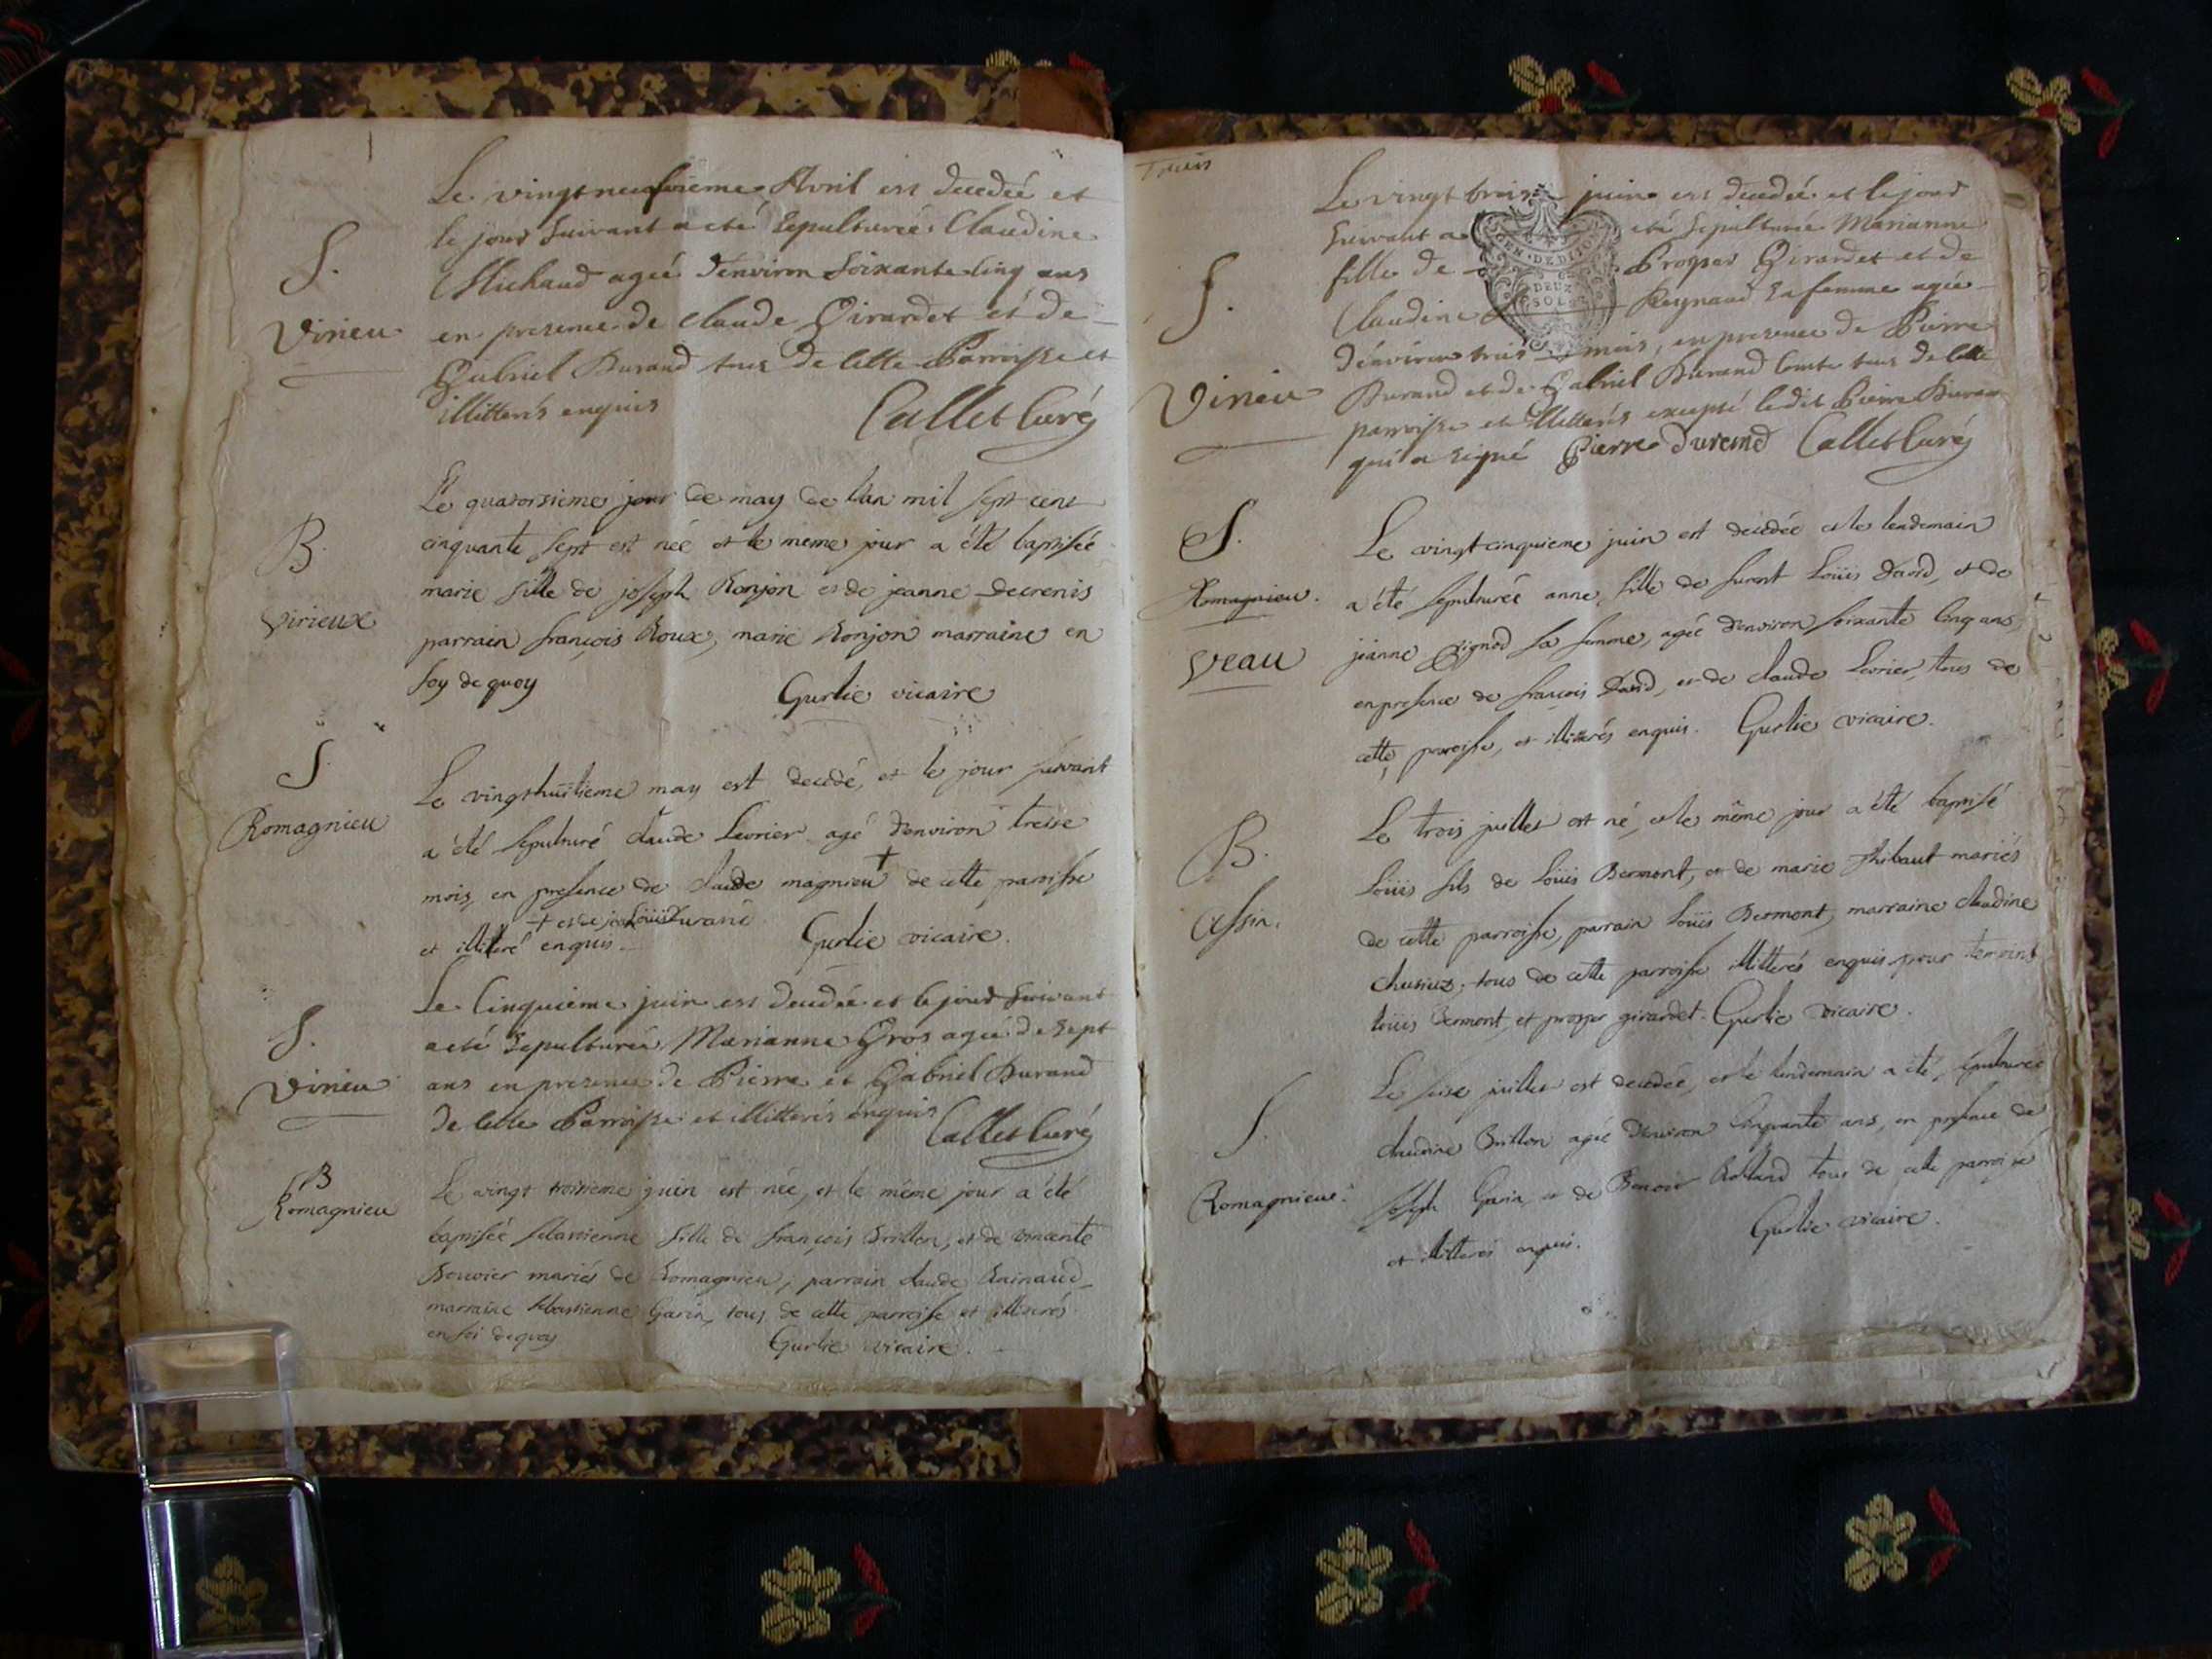 Le vingtneufvieme Avril est decedeé et
le jour suivant a eté sepulturée Claudine
Michaud ageé d'environ soixante cinq ans
S.
Virieu
en presence de Claude Girardet et de
Gabriel Durand tous de cette Parroisse et
illitterés enquis
Callet Curé
Le quatorsieme jour de may de l'an mil sept cent
cinquante sept est née et le meme jour a été baptisée
B.
Virieux
marie fille de joseph Ronjon et de jeanne decrenis
parrain françois Roux, marie Ronjon marraine en
foy de quoy
Gurlie vicaire
S.
Romagnieu
Le vingthuitieme may est decedé, et le jour suivant
a été sepulturé claude Levrier agé d'environ treise
mois, en presence de claude magnieu + de cette parroisse
+ et de Loüis Durand
et illiteré enquis.
Gurlie vicaire.
Le Cinquieme juin est decedée et le jour suivant
S.
Virieu
a eté sepulturée Marianne Gros ageé de sept
ans en presence de Pierre et Gabriel Durand
de cette Parroisse et illitterés enquis
Callet Curé
B
Romagnieu
Le vingt troisieme juin est née, et le même jour a été
baptisée sebastienne fille de françois Britton, et de vincente
Bouvier mariés de Romagnieu, parrain claude Rainaud
marraine sebastienne Garin, tous de cette parroisse et illiterés
en foi de quoy
Gurlie vicaire.
Trois
Le vingt trois juin est decedeé et le jour
suivant a eté sepulturée Marianne
GEN. DE DIJON
DEUX
SOLS
S.
Virieu
fille de Prosper Girardet et de
Claudine Reynaud sa femme agée
d'environ trois mois, en presence de Pierre
Durand et de Gabriel Durand tous de cette
parroisse et illitterés excepté ledit Pierre Duran
qui a signé Pierre durand Callet Curé
S.
Romagnieu.
Veau
Le vingtcinquieme juin est decedée et le lendemain
a été sepulturée anne, fille de Loüis David, et de
jeanne sa femme, ageé d'environ soixante cinq ans,
en presence de françois David, et de claude Levrier, tous de
cette paroisse, et illiterés enquis. Gurlie vicaire.
B.
Assin.
Le trois juillet est né, et le même jour a été baptisé
Loüis fils de Loüis Bermont, et de marie Thibaut mariés
de cette parroisse, parain Loüis Bermont, marraine claudine
tous de cette parroisse illitterés enquis pour temoins
Loüis Bermont, et prosper girardet. Gurlie vicaire.
S.
Romagnieu.
Le seise juillet est decedeé, et le lendemain a été sepulturée
claudine Britton ageé d'environ cinquante ans, en presence de
joseph Garin, et de Benoit Rolland tous de cette parroisse
et illitterés enquis.
Gurlie vicaire.